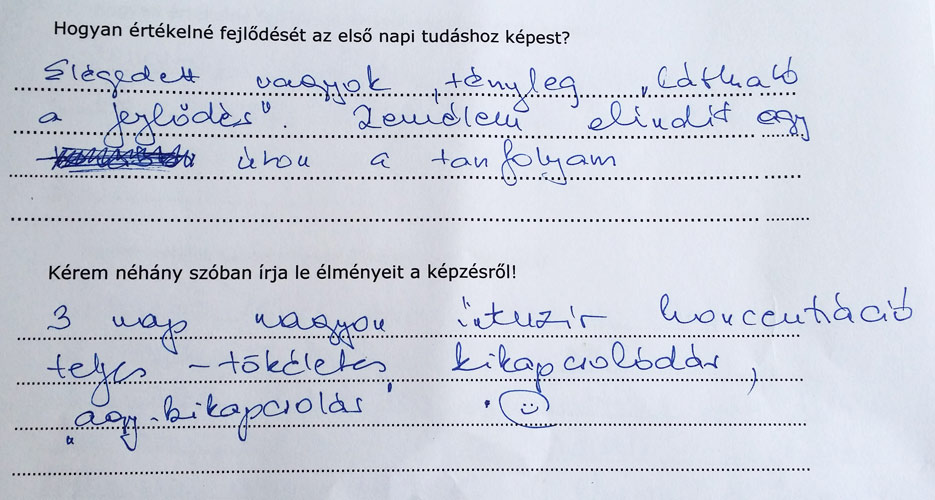 Hogyan értékelné fejlődését az első napi tudáshoz képest?
Elégedett vagyok, tényleg „látható
a fejlődés”. Remélem elindít egy
úton a tanfolyam
Kérem néhány szóban írja le élményeit a képzésről!
3 nap nagyon intezív koncentráció
teljes – tökéletes kikapcsolódás,
„agy-kikapcsolás”. ☺